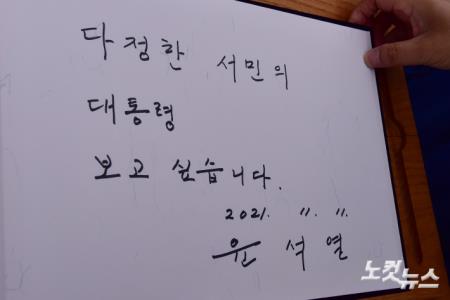 다정한 서민의
대통령
보고 싶습니다.
2021. 11. 11.
윤석열
노컷뉴스